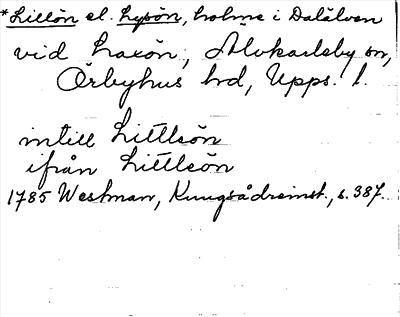 *Lillön el. Lysön, holme i Dalälven
vid Laxön, Älvkarleby sn,
Örbyhus hd, Upps. l.
intill Littlsön
ifrån Littlsön
1785 Westman, Kungsådreinst., s. 387.